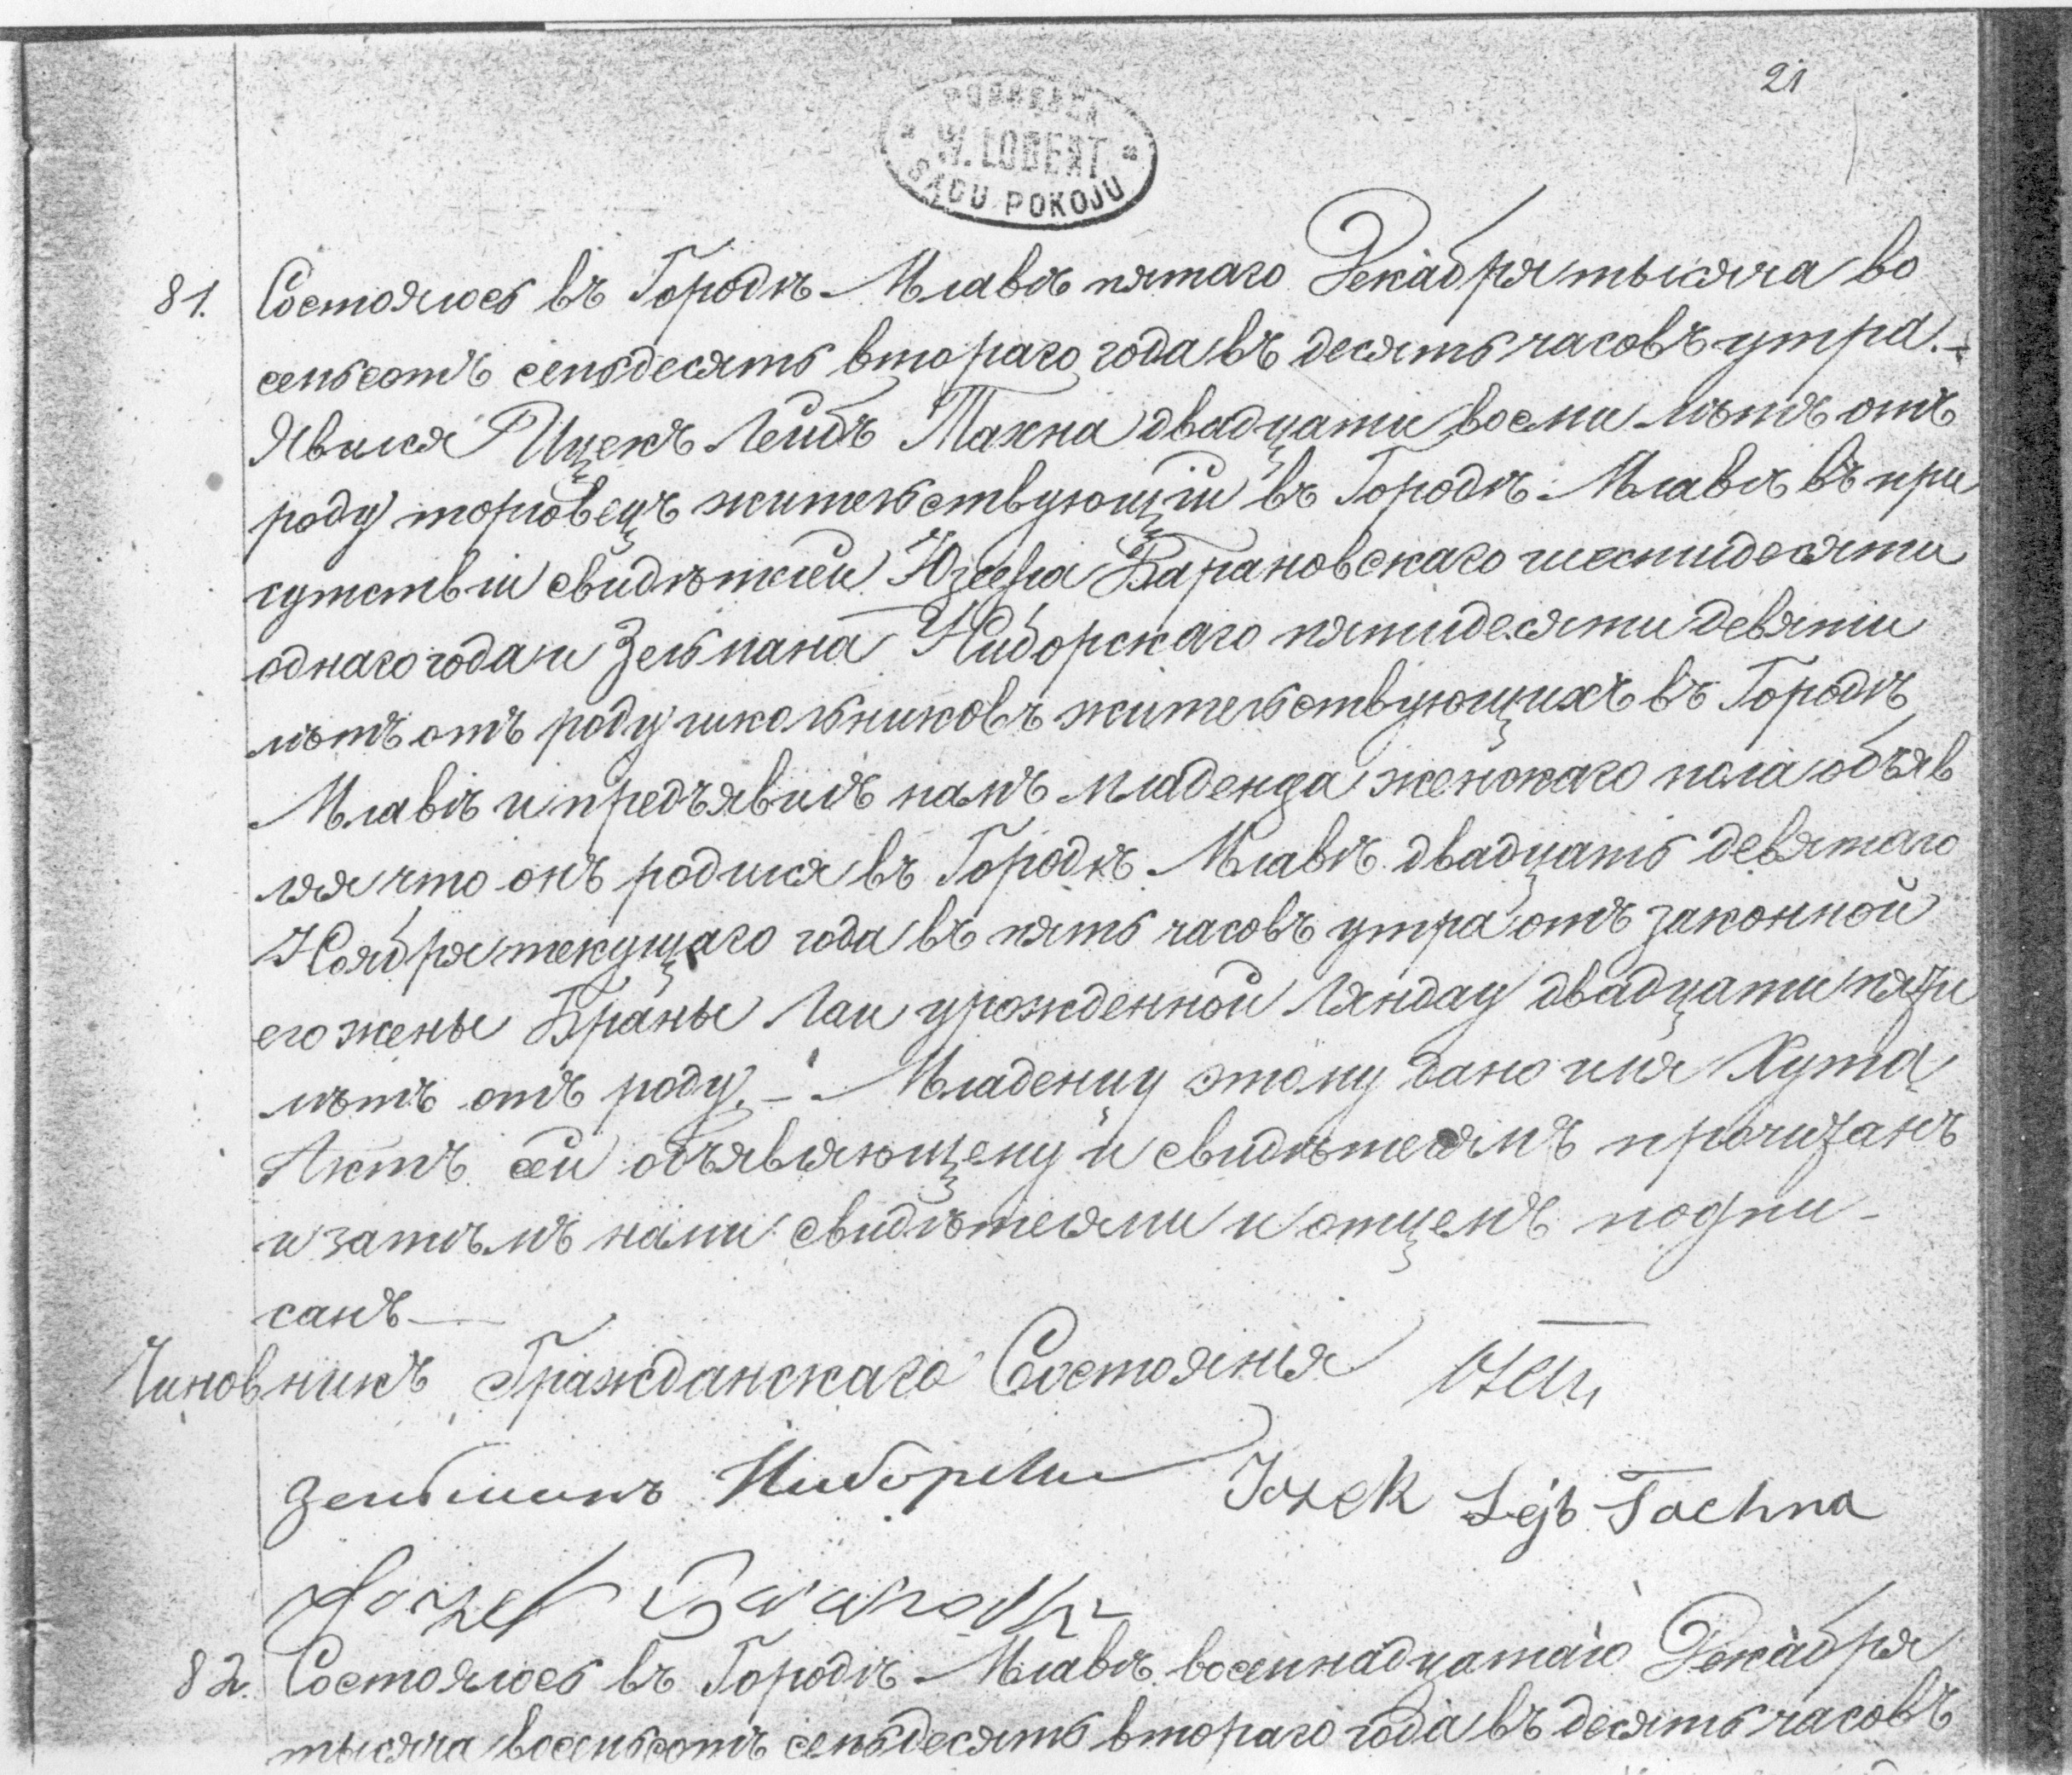 21
W. LOBERT
SĄDU POKOJU
81. Состоялось въ Городѣ Млавѣ пятаго Декабря тысяча во
семьсотъ семьдесятъ втораго года въ десять часовъ утра. –
Явился Ицекъ Лейбъ Тахна двадцати восьми лѣтъ отъ
роду торговецъ жительствующій въ Городѣ Млавѣ въ при
сутствіи свидѣтелей Юзефа Барановскаго шестидесяти
однаго года и Зельмана Ниборскаго пятидесяти девяти
лѣтъ отъ роду школьниковъ жительствующихъ въ Городѣ
Млавѣ и предъявилъ намъ младенца женскаго пола объяв
ляя что онъ родился въ Городѣ Млавѣ двадцать девятаго
Ноября текущаго года въ пять часовъ утра отъ законной
его жены Браны Лаи урожденной Ляндау двадцати пяти
лѣтъ отъ роду. – Младенцу этому дано имя Хута
Актъ сей объявляющему и свидѣтелямъ прочитанъ
и затѣмъ нами свидѣтелями и отцемъ подпи-
санъ —
Чиновникъ Гражданскаго Состоянія
Зельманъ Ниборски Iczek Lejb Tachna
Jozef Baranowski
82. Состоялось въ Городѣ Млавѣ восемнадцатаго Декабря
тысяча восемьсотъ семьдесятъ втораго года въ десять часовъ